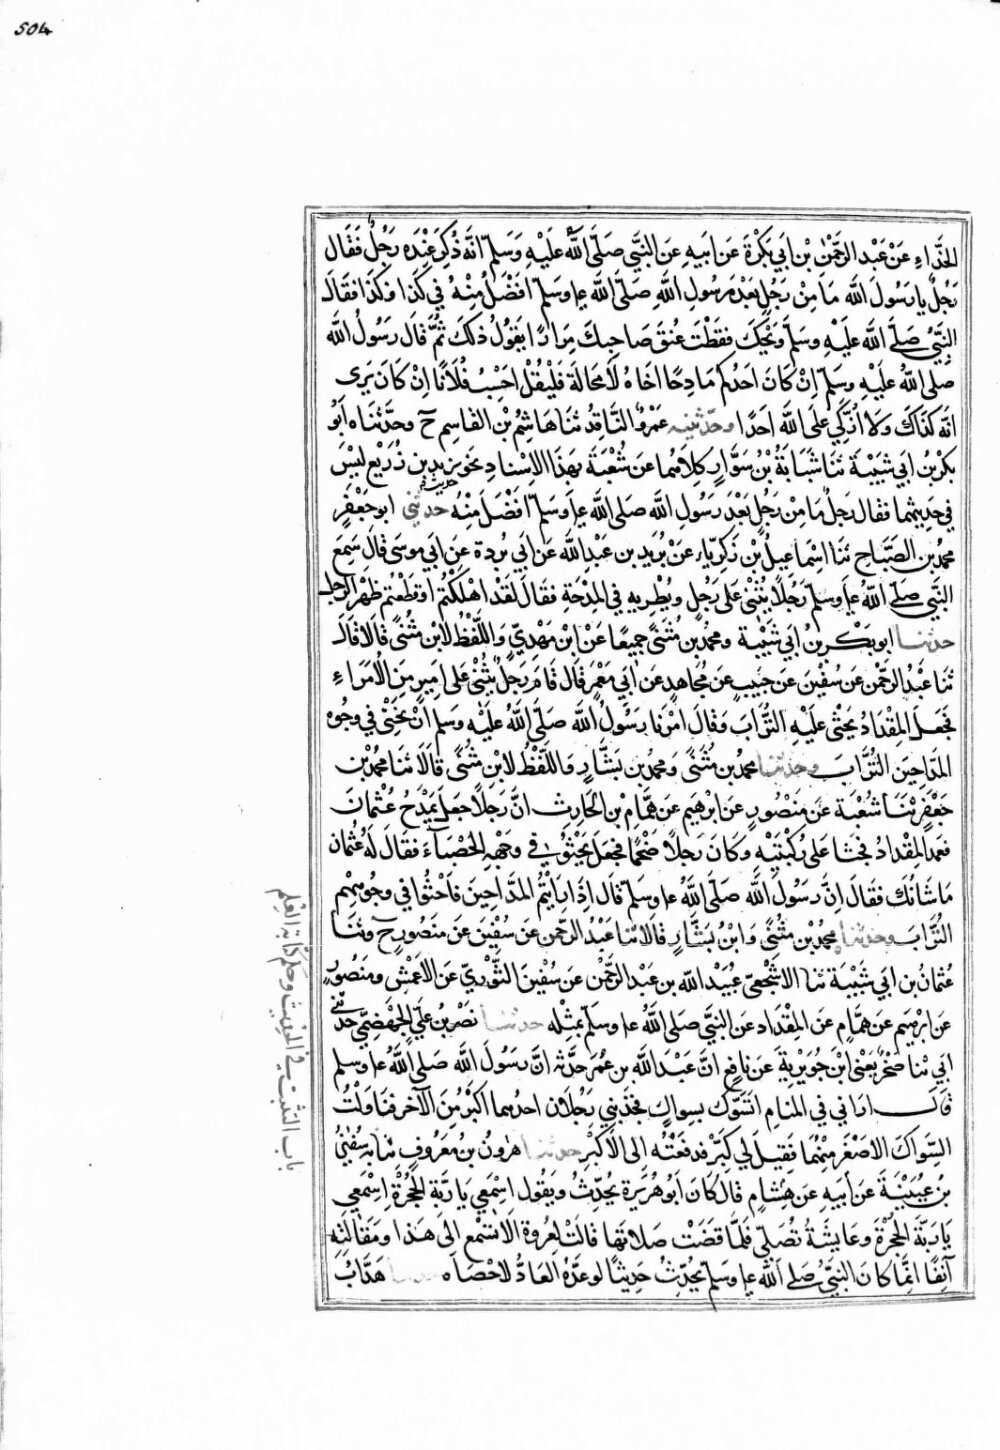 504
الحَذَّاءِ عَنْ عَبْدِ الرَّحْمٰنِ بْنِ اَبِي بَكْرَةَ عَنْ اَبِيهِ عَنِ النَّبِيِّ صَلَّى اللهُ عَلَيْهِ وَسَلَّمَ اَنَّهُ ذُكِرَ عِنْدَهُ رَجُلٌ فَقَالَ
رَجُلٌ يَا رَسُولَ اللهِ مَا مِنْ رَجُلٍ بَعْدَ رَسُولِ اللهِ صَلَّى اللهُ عليه وسلم اَفْضَلُ مِنْهُ فِي كَذَا وَكَذَا فَقَالَ
النَّبِيُّ صَلَّى اللهُ عَلَيْهِ وَسَلَّمَ وَيْحَكَ قَطَعْتَ عُنُقَ صَاحِبِكَ مِرَارًا يَقُولُ ذٰلِكَ ثُمَّ قَالَ رَسُولُ اللهِ
صلى اللهُ عَلَيْهِ وسلم اِنْ كَانَ اَحَدُكُمْ مَادِحًا اَخَاهُ لَا مَحَالَةَ فَلْيَقُلْ اَحْسِبُ فُلَانًا اِنْ كَانَ يَرَى
اَنَّهُ كَذَاكَ وَلَا اُزَكِّي عَلَى اللهِ اَحَدًا وحدثنيه عَمْرٌو النَّاقِدُ ثَنَا هَاشِمُ بْنُ القَاسِمِ ح وحَدَّثَنَاه اَبُو
بَكْرِ بْنُ اَبِي شَيْبَةَ ثَنَا شَبَابَةُ بْنُ سَوَّارٍ كِلَاهُمَا عَنْ شُعْبَةَ بِهَذَا الْاِسْنَادِ نحو حديث يزيد بن زُرَيْعٍ لَيْسَ
فِي حَدِيثِهِمَا فَقَالَ رَجُلٌ مَا مِنْ رَجُلٍ بَعْدَ رَسُولِ اللهِ صلى الله عليه وسلم اَفْضَلَ مِنْهُ حدثني ابو جَعْفَرٍ
محمد بن الصَّبَّاحِ ثَنَا اِسْمَاعِيلُ بْنُ زَكَرِيَّاء عَنْ بُرَيْدِ بن عَبْدِ اللهِ عَنْ اَبِي بُرْدَةَ عَنْ اَبِي مُوسَى قَالَ سَمِعَ
النَّبِيُّ صلى اللهُ عليه وسلم رَجُلًا يُثْنِي عَلَى رَجُلٍ ويُطْرِيهِ فِي المِدْحَةِ فَقَالَ لَقَدْ اَهْلَكْتُمْ اَوْ قَطَعْتُمْ ظَهْرَ الرَّجُلِ
حدثنا ابو بَكْرِ بنُ اَبِي شَيْبَةَ ومحمد بن مُثَنًّى جَمِيعًا عَنْ ابْنِ مَهْدِيٍّ وَاللَّفْظُ لِابْنِ مُثَنًّى قَالَا قَالَ
ثَنَا عَبْدُ الرَّحْمٰنِ عَنْ سُفْيٰنَ عَنْ حَبِيبٍ عَنْ مُجَاهِدٍ عَنْ اَبِي مَعْمَرٍ قَالَ قَامَ رَجُلٌ يُثْنِي عَلَى اَمِيرٍ مِنَ الْاُمَرَاءِ
فَجَعَلَ المِقْدَادُ يَحْثِي عَلَيْهِ التُّرَابَ وَقَالَ اَمَرَنَا رَسُولُ اللهِ صَلَّى اللهُ عَلَيْهِ وسلم اَنْ نَحْثِيَ فِي وُجُوهِ
المَدَّاحِينَ التُّرَابَ وحدثنا محمد بن مُثَنًّى ومحمد بن بَشَّارٍ وَاللَّفْظُ لِابْنِ مُثَنًّى قَالَا ثَنَا محمد بْنُ
جَعْفَرٍ ثَنَا شُعْبَةُ عَنْ مَنْصُورٍ عَنْ اِبْرٰهِيمَ عَنْ هَمَّامِ بْنِ الحَارِثِ اَنَّ رَجُلًا جَعَلَ يَمْدَحُ عُثْمَانَ
فَعَمَدَ المِقْدَادُ فَجَثَا عَلَى رُكْبَتَيْهِ وَكَانَ رَجُلًا ضَخْمًا فَجَعَلَ يَحْثُو فِي وَجْهِهِ الحَصْبَاءَ فَقَالَ لَهُ عُثْمَانُ
مَا شَانُكَ فَقَالَ اِنَّ رَسُولَ اللهِ صَلَّى اللهُ عليه وسلم قَالَ اِذَا رَاَيْتُمُ المَدَّاحِينَ فَاحْثُوا فِي وُجُوهِهِمِ
التُّرَابَ وحدثنا محمد بن مُثَنًّى وَابْنُ بَشَّارٍ قَالَا ثَنَا عَبْدُ الرَّحْمٰنِ عَنْ سُفْيٰنَ عَنْ مَنْصُورٍ ح وثَنَا
عُثْمَانُ بن اَبِي شَيْبَةَ ثَنَا الاَشْجَعِيُّ عُبَيْدُ اللهِ بن عَبْدِ الرَّحْمٰنِ عَنْ سُفْيٰنَ الثَّوْرِيِّ عَنِ الْاَعْمَشِ ومَنْصُورٍ
عَنْ اِبْرٰهِيمَ عَنْ هَمَّامٍ عَنِ المِقْدَادِ عَنِ النَّبِيِّ صَلى اللهُ عليه وسلم بِمِثْلِهِ حدثنا نَصْرُ بْنُ عَلِيٍّ الجَهْضَمِيُّ حدثني
اَبِي ثَنَا صَخْرٌ يَعْنِي ابْنَ جُوَيْرِيَةَ عَنْ نَافِعٍ اَنَّ عَبْدَ اللهِ بن عُمَرَ حَدَّثَهُ اَنَّ رَسُولَ اللهِ صلى اللهُ عليه وسلم
قَالَ اَرَانِي فِي المَنَامِ اَتَسَوَّكُ بِسِوَاكٍ فَجَذَبَنِي رَجُلَانِ احدهما اَكْبَرُ مِنَ الْآخَرِ فَنَاوَلْتُ
السِّوَاكَ الاَصْغَرَ مِنْهُمَا فَقِيلَ لِي كَبِّرْ فَدَفَعْتُهُ اِلَى الْاَكْبَرِ حدثنا هٰرُونُ بْنُ مَعْرُوفٍ ثنا به سُفْيٰنُ
بْنُ عُيَيْنَةَ عَنْ اَبِيهِ عَنْ هِشَامٍ قَالَ كَانَ اَبُو هُرَيْرَةَ يُحَدِّثُ وَيَقُولُ اِسْمَعِي يَا رَبَّةَ الحُجْرَةِ اِسْمَعِي
يَا رَبَّةَ الحُجْرَةِ وعَايِشَةُ تُصَلِّي فَلَمَّا قَضَتْ صَلَاتَهَا قَالَتْ لِعُرْوَةَ اَلَا تَسْمَعُ اِلَى هَذَا وَمَقَالَتِهِ
آنِفًا اِنَّمَا كَانَ النَّبِيُّ صلى الله عليه وسلم يُحَدِّثُ حَدِيثًا لَوْ عَدَّهُ العَادُّ لَاَحْصَاهُ حدثنا هَدَّابُ
باب التثبت في الحديث وحكم كتابة العلم